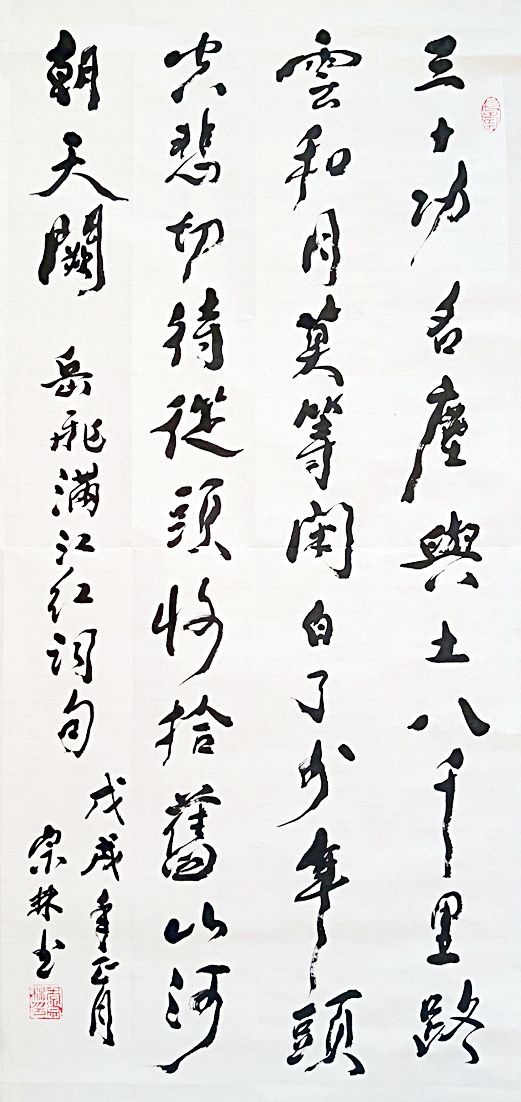 三十功名塵與土八千里路
雲和月莫等閑白了少年頭
空悲切待從頭收拾舊山河
朝天闕
岳飛滿江红词句
戊戌年正月
宗林书